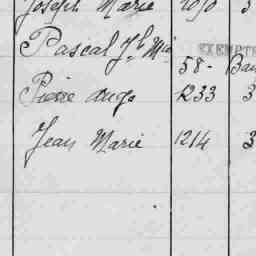 Joseph Marie 1090 3
Pascal Jh Mie EXEMPTÉ
58 - Bau
Pierre Augo 1233 3
Jean Marie 1214 3